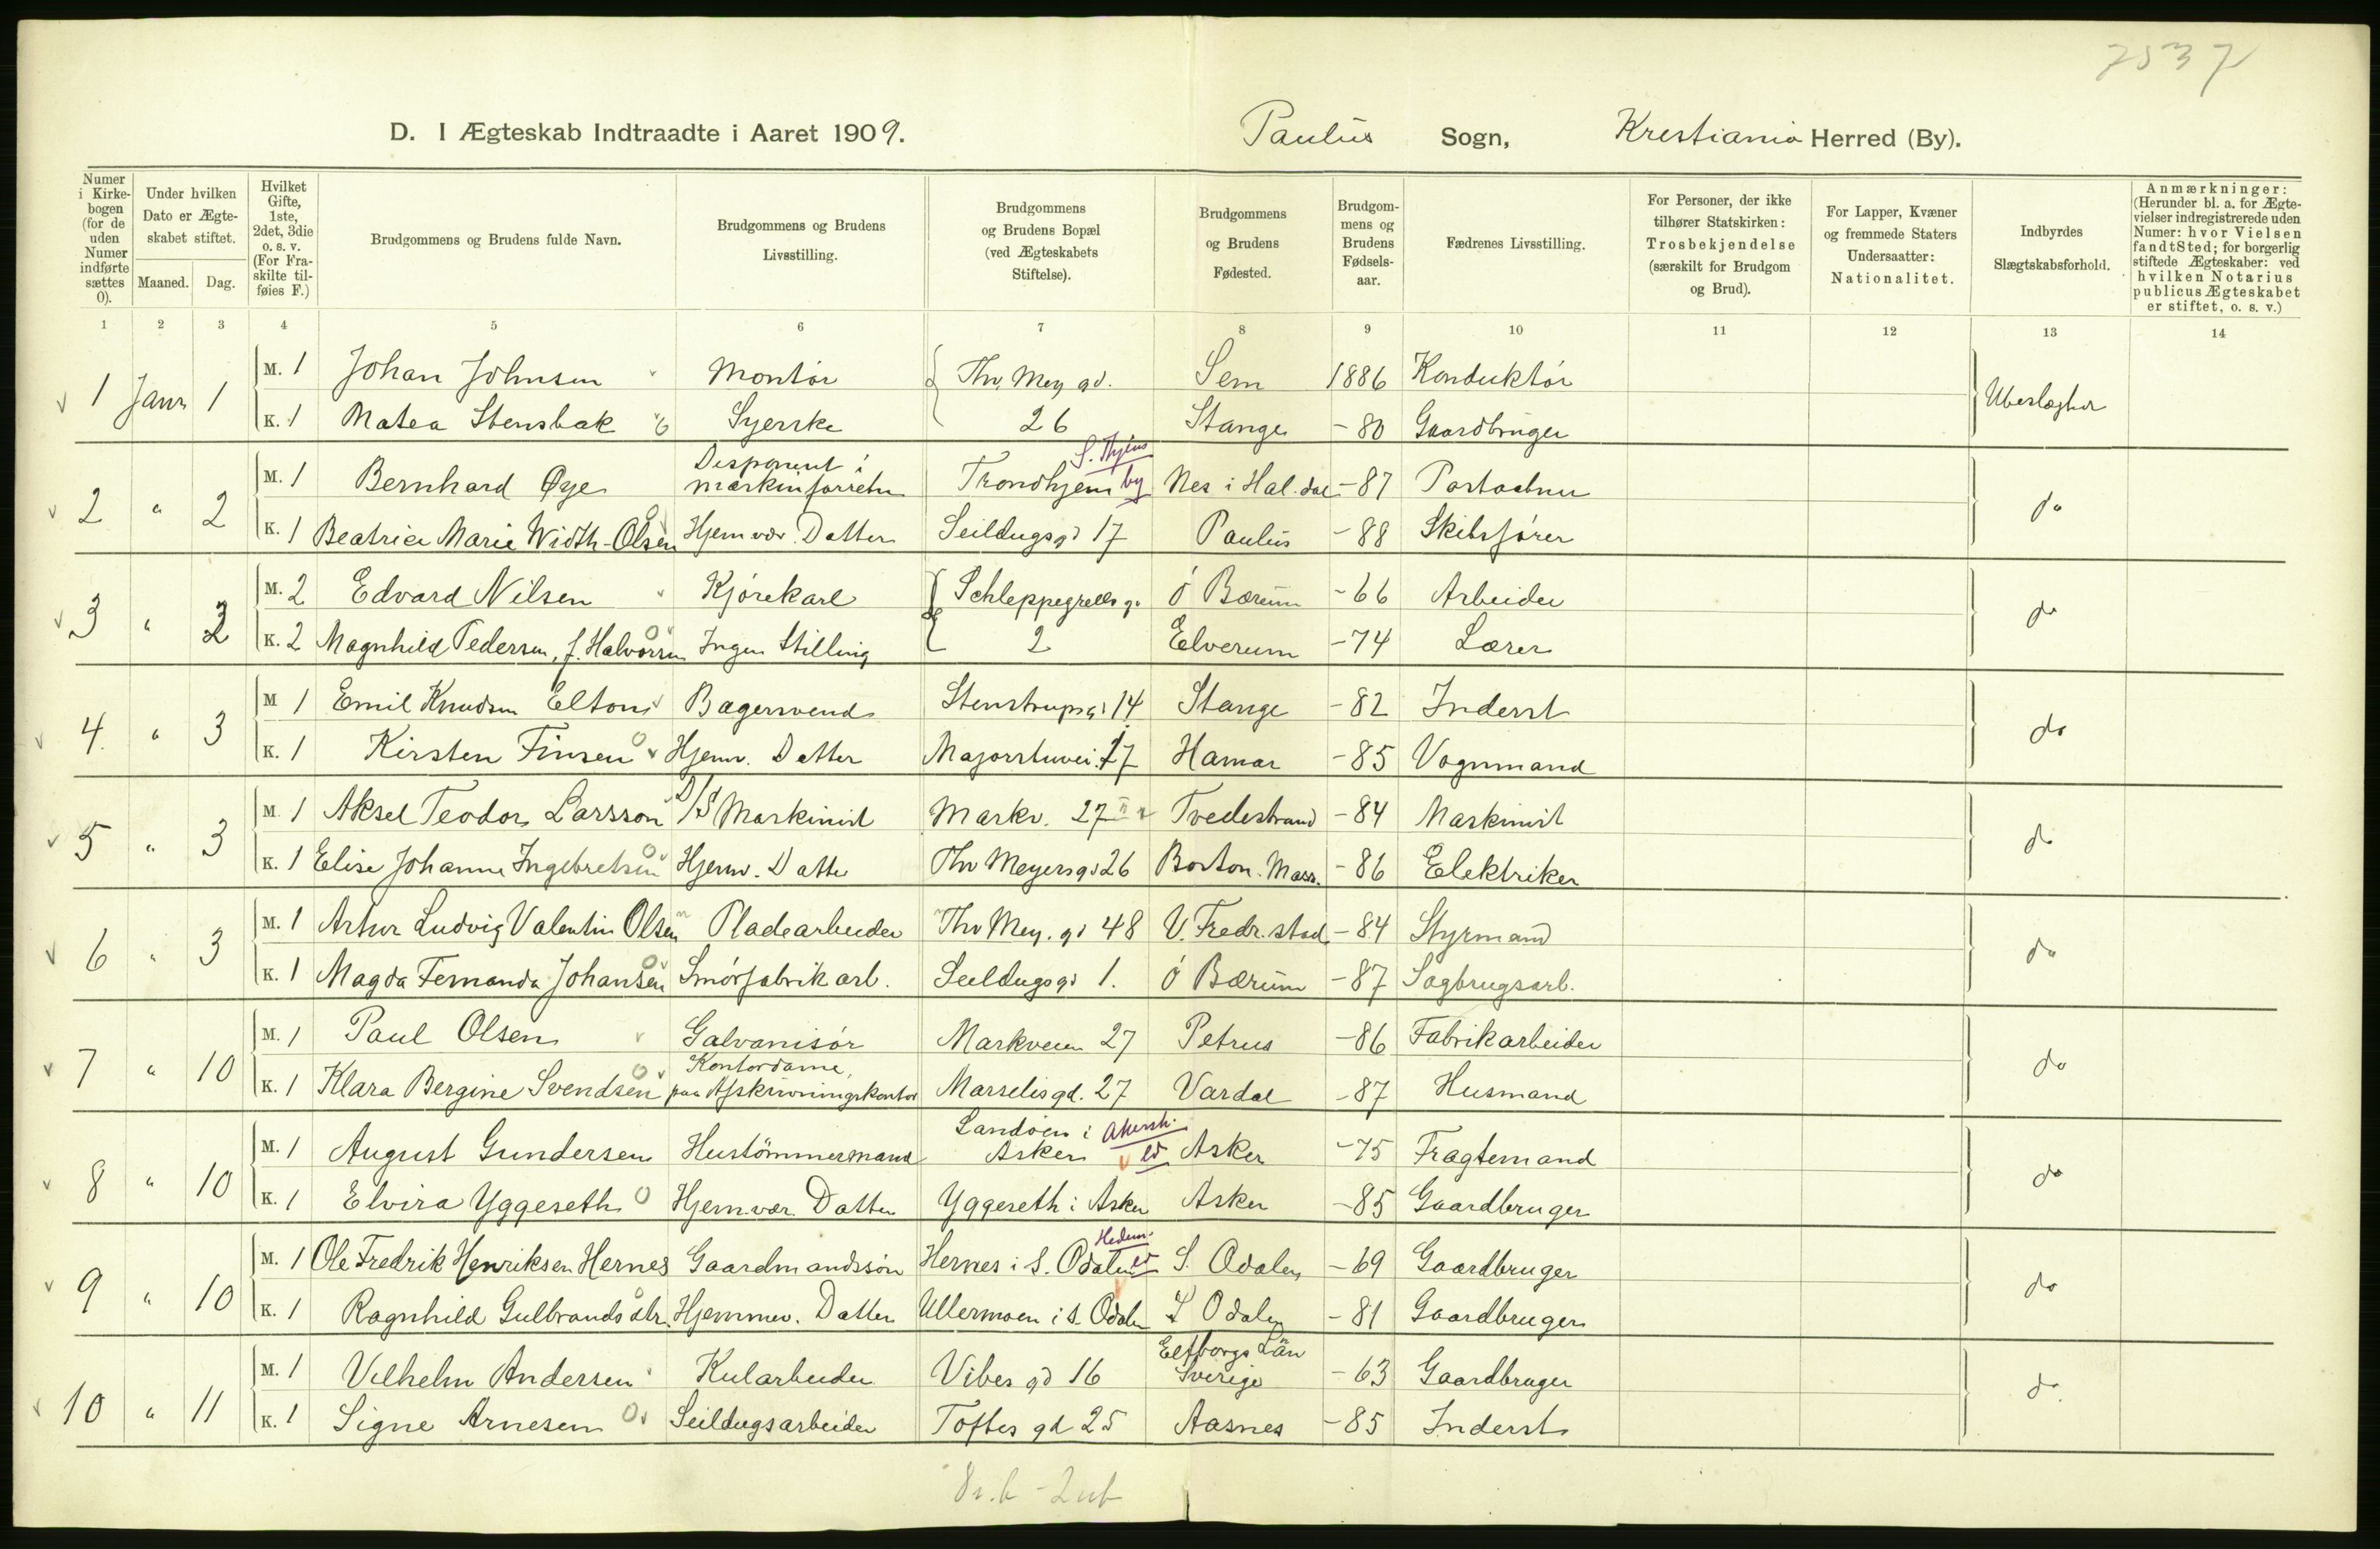 7537
D. I Ægteskab Indtraadte i Aaret 1909. Paulus Sogn, Krestiania Herred (By).
Numer i Kirkebogen (for de uden Numer indførte sættes 0). Under hvilken Dato er Ægteskabet stiftet. Maaned. Dag. Hvilket Gifte, 1ste, 2det, 3die o. s. v. (For Fraskilte tilføies F.) Brudgommens og Brudens fulde Navn. Brudgommens og Brudens Livsstilling. Brudgommens og Brudens Bopæl (ved Ægteskabets Stiftelse). Brudgommens og Brudens Fødested. Brudgommens og Brudens Fødselsaar. Fædrenes Livsstilling. For Personer, der ikke tilhører Statskirken: Trosbekjendelse (særskilt for Brudgom og Brud). For Lapper, Kvæner og fremmede Staters Undersaatter: Nationalitet. Indbyrdes Slægtskabsforhold. Anmærkninger: (Herunder bl. a. for Ægtevielser indregistrerede uden Numer: hvor Vielsen fandt Sted; for borgerlig stiftede Ægteskaber: ved hvilken Notarius publicus Ægteskabet er stiftet, o. s. v.)
1 2 3 4 5 6 7 8 9 10 11 12 13 14
1 Janr 1 M. 1 Johan Johnsen Montør Thv. Mey gd. Sem 1886 Konduktør Ubeslægtet
K. 1 Matea Stensbak Syerske 26 Stange -80 Gaardbruger
2 " 2 M. 1 Bernhard Øye Disponent i maskinforretn Trondhjem by S. Thjems Nes i Hal.dal -87 Postaabner do
K. 1 Beatrice Marie Width-Olsen Hjemvær. Datter Seildugsgd 17 Paulus -88 Skibsfører
3 " 2 M. 2 Edvard Nilsen Kjørekarl Schleppegrells g. Ø Bærum -66 Arbeider do
K. 2 Magnhild Pedersen, f. Halvorsen Ingen Stilling 2 Elverum -74 Lærer
4. " 3 M 1 Emil Knudsen Elton Bagersvend Stenstrupsgd 14 Stange -82 Inderst do
K. 1 Kirsten Finsen Hjemv. Datter Majorstuvei. 17 Hamar -85 Vognmand
5 " 3 M. 1 Aksel Teodor Larsson D/S Maskinist Markv. 27 II Tvedestrand -84 Maskinist do
K. 1 Elise Johanne Ingebretsen Hjemv. Datter Thv Meyersgd 26 Boston. Mass. -86 Elektriker
6 " 3 M. 1 Artur Ludvig Valentin Olsen Pladearbeider Thv Mey. gd 48 V. Fredr.stad -84 Styrmand do
K. 1 Magda Fernanda Johansen Smørfabrik arb. Seildugsgd 1. Ø Bærum -87 Sagbrugsarb.
7 " 10 M. 1 Paul Olsen Galvanisør Markveien 27 Petrus -86 Fabrikarbeider do
K. 1 Klara Bergine Svendsen Kontordame, paa Afskrivningskontor Marselisgd. 27 Vardal -87 Husmand
8 " 10 M. 1 August Gundersen Hustømmermand Landøen i Asker Akersh. Asker -75 Fragtemand do
K. 1 Elvira Yggeseth Hjem.vær. Datter Yggeseth i Asker Asker -85 Gaardbruger
9 " 10 M. 1 Ole Fredrik Henriksen Hernes Gaardmandssøn Hernes i S. Odalen Hedem. S. Odalen -69 Gaardbruger do
K. 1 Ragnhild Gulbrandsdtr. Hjemmev. Datter Ullermoen i S. Odalen S Odalen -81 Gaardbruger
10 " 11 M. 1 Vilhelm Andersen Kularbeider Vibes gd 16 Elfborgs Län Sverige -63 Gaardbruger do.
K. 1 Signe Arnesen Seildugsarbeider Toftes gd 25 Aasnes -85 Inderst